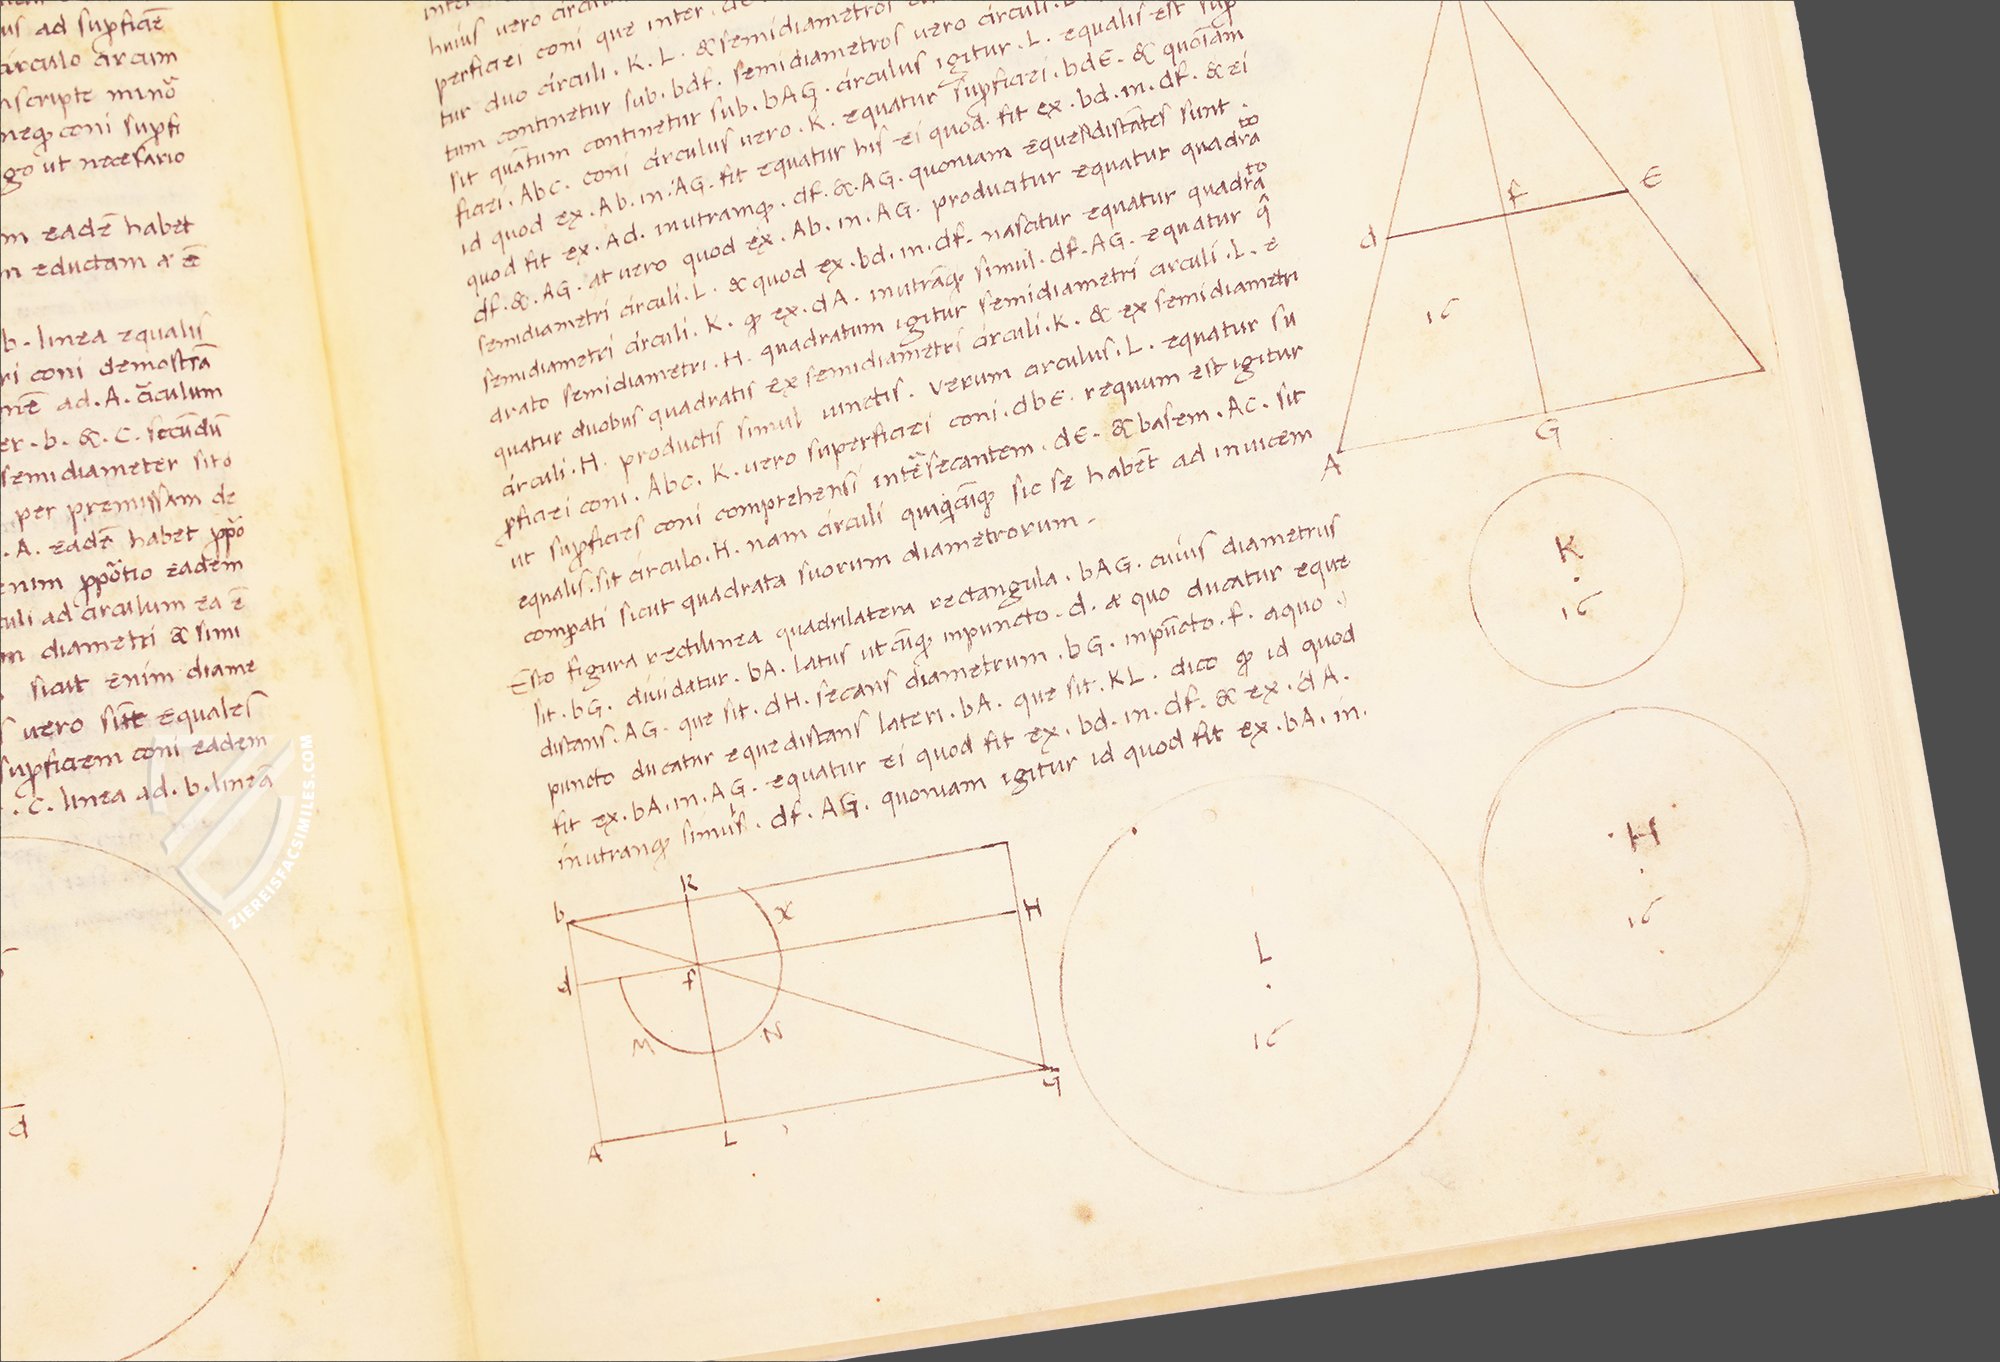 us ad supficiē
circulo circum
nscripte minoͬ
neqꝫ coni supfi
go ut necesario
m eadē habet
n eductam a ē
b. linea equalis
ri coni demostrā
nē ad. A. ciculum
er. b. &. C. secūdū
semidiameter sit
per premissam de
. A. eadē habet ppo
enim ppotio eadem
culi ad circulum ea ē
m diametri & simi
sicut enim diame
s vero sint equales
supficiem coni eadem
. C. linea ad. b. lineā
d
huius vero circuli
perficiei coni que inter
tur duo circuli. K. L. & semidiametros
tum continetur sub. bdf. semidiametros vero circuli.
sit quātum continetur sub. bAG. circulus igitur. L. equalis est sup
ficiei. Abc. coni circulus vero. K. equatur supficiei. bdE. & quoīam
id quod ex. Ab. in. AG. fit equatur his ei quod fit ex. bd. in. df. & ei
quod fit ex. Ad. inutramqꝫ. df. &. AG. quoniam equedistātes sunt.
df. &. AG. at vero quod ex. Ab. in. AG. producitur equatur quadrato
semidiametri circuli. L. & quod ex. bd. in. df. nascitur equatur quadrato
semidiametri circuli. K. ꝙ ex. dA. inutrāqꝫ simul. df. AG. equatur q̄
drato semidiametri. H. quadratum igitur semidiametri circuli. L. e
quatur duobus quadratis ex semidiametri circuli. K. & ex semidiametri
circuli. H. productis simul iunctis. verum circulus. L. equatur su
pficiei coni. Abc. K. vero superficiei coni. dbE. requum est igitur
ut supficies coni comprehensi intēsecantem. dE. & basem. AC. sit
equalis. sit circulo. H. nam circuli quicūqꝫ sic se habēt ad inuicem
compati sicut quadrata suorum diametrorum.
Esto figura rectilinea quadrilatera rectangula. bAG. cuius diametrus
sit. bG. diuidatur. bA. latus utcūqꝫ inpuncto. d. a quo ducatur eque
distans. AG. que sit. dH. secans diametrum. bG. inpūcto. f. aquo
puncto ducatur equedistans lateri. bA. que sit. KL. dico ꝙ id quod
fit ex. bA. in. AG. equatur ei quod fit ex. bd. in. df. & ex. dA.
inutranqꝫ simul. df. AG. quoniam igitur id quod fit ex. bA. in.
d
f
E
16
A
G
K
16
H
16
L
16
b
K
X
H
d
f
M
N
G
A
L
ZIEREISFACSIMILES.COM